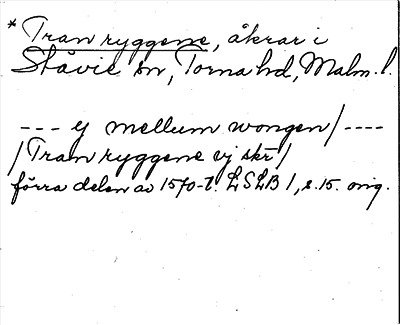 * Tranryggene, åkrar i
Ståvie sn, Torna hd, Malm. l.
--- ej mellum wongen/----
/Tranryggene vj skr/
förra delen av 1570-t. LSLB 1, s. 15. orig.